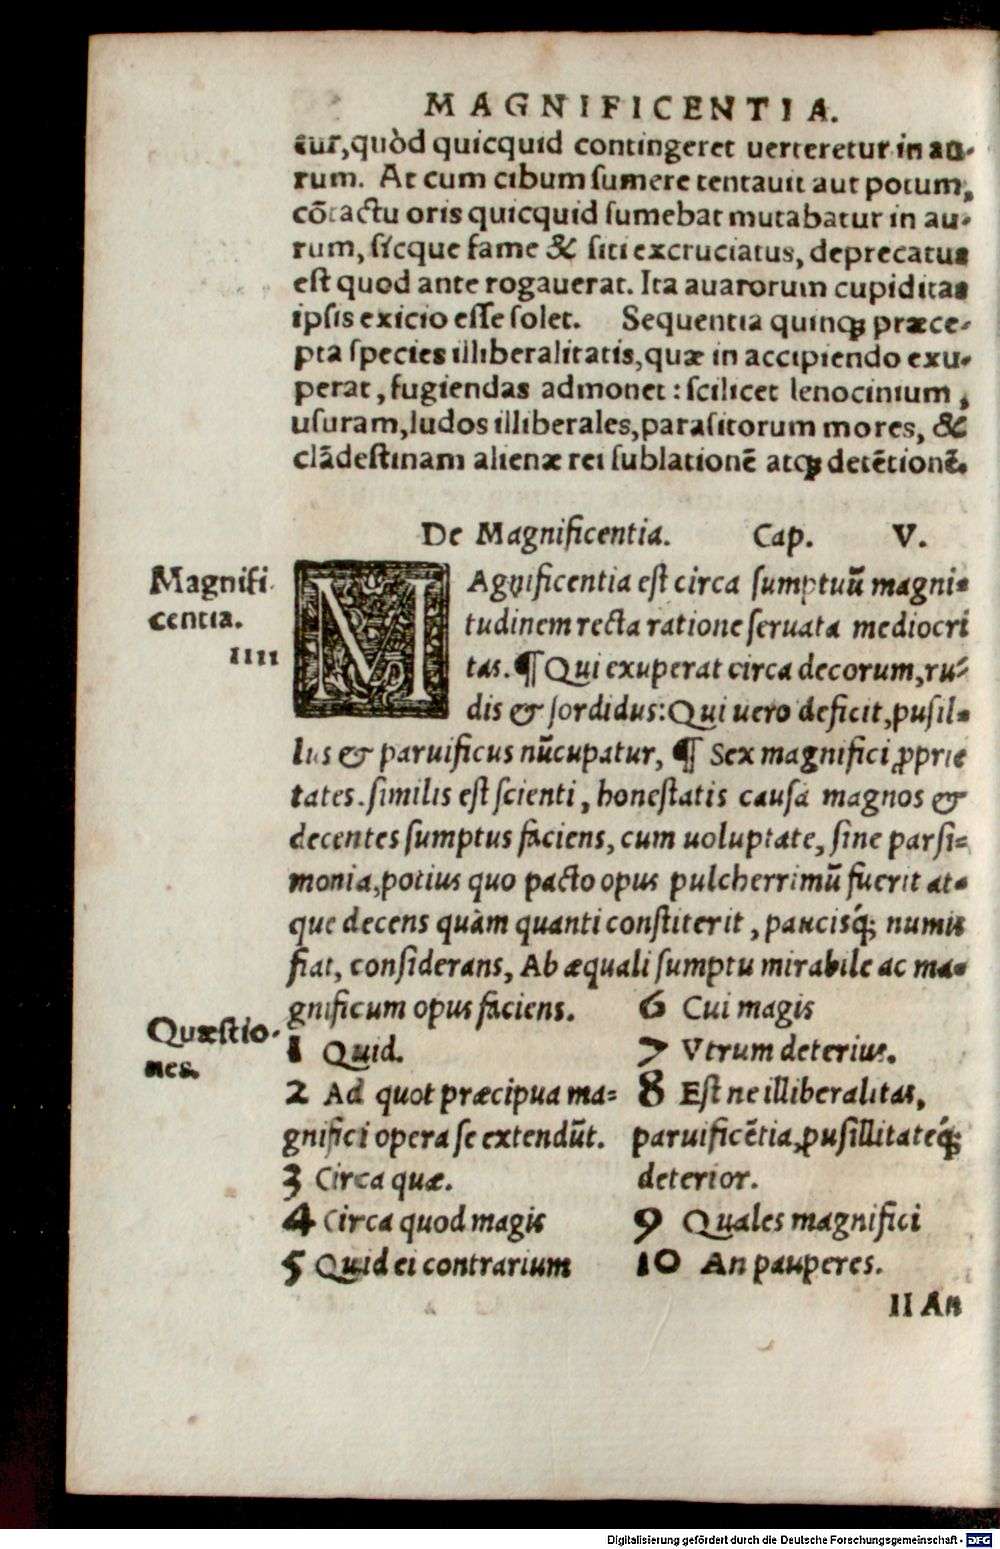 MAGNIFICENTIA.
tur̃, quòd quicquid contingeret uerteretur in au-
rum. At cum cibum sumere tentauit aut potum,
cōtactu oris quicquid sumebat mutabatur in au-
rum, sicque fame & siti excruciatus, deprecatus
est quod ante rogauerat. Ita auarorum cupiditas
ipsis exicio esse solet. Sequentia quinqꝫ præce-
pta species illiberalitatis, quæ in accipiendo exu-
perat, fugiendas admonet: scilicet lenocinium,
usuram, ludos illiberales, parasitorum mores, &
clādestinam alienæ rei sublationē atqꝫ detētionē.
De Magnificentia. Cap. V.
Magnifi
centia.
IIII
MAgnificentia est circa sumptuū magni-
tudinem recta ratione seruata mediocri
tas. ¶ Qui exuperat circa decorum, ru-
dis & sordidus: Qui uero deficit, pusil-
lus & paruificus nūcupatur, ¶ Sex magnifici ꝓprie
tates. similis est scienti, honestatis causa magnos &
decentes sumptus faciens, cum uoluptate, sine parsi-
monia, potius quo pacto opus pulcherrimū fuerit at-
que decens quàm quanti constiterit, paucisq́ꝫ numis
fiat, considerans, Ab æquali sumptu mirabile ac ma-
gnificum opus faciens.
Quæstio-
nes.
1 Quid.
2 Ad quot præcipua ma-
gnifici opera se extendūt.
3 Circa quæ.
4 Circa quod magis
5 Quid ei contrarium
6 Cui magis
7 Vtrum deterius.
8 Est ne illiberalitas,
paruificētia, ꝓpusillitateq́ꝫ
deterior.
9 Quales magnifici
10 An pauperes.
II An
Digitalisierung gefördert durch die Deutsche Forschungsgemeinschaft - DFG